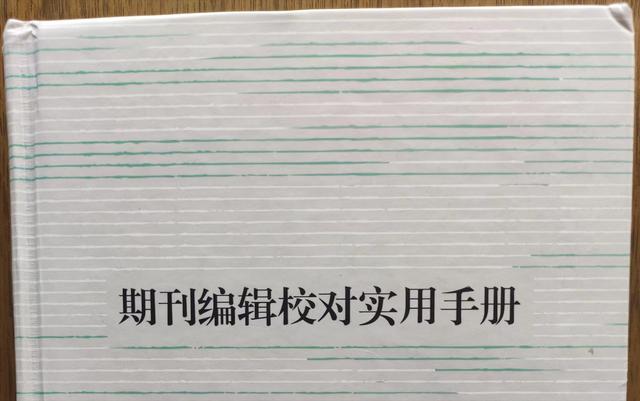 期刊编辑校对实用手册